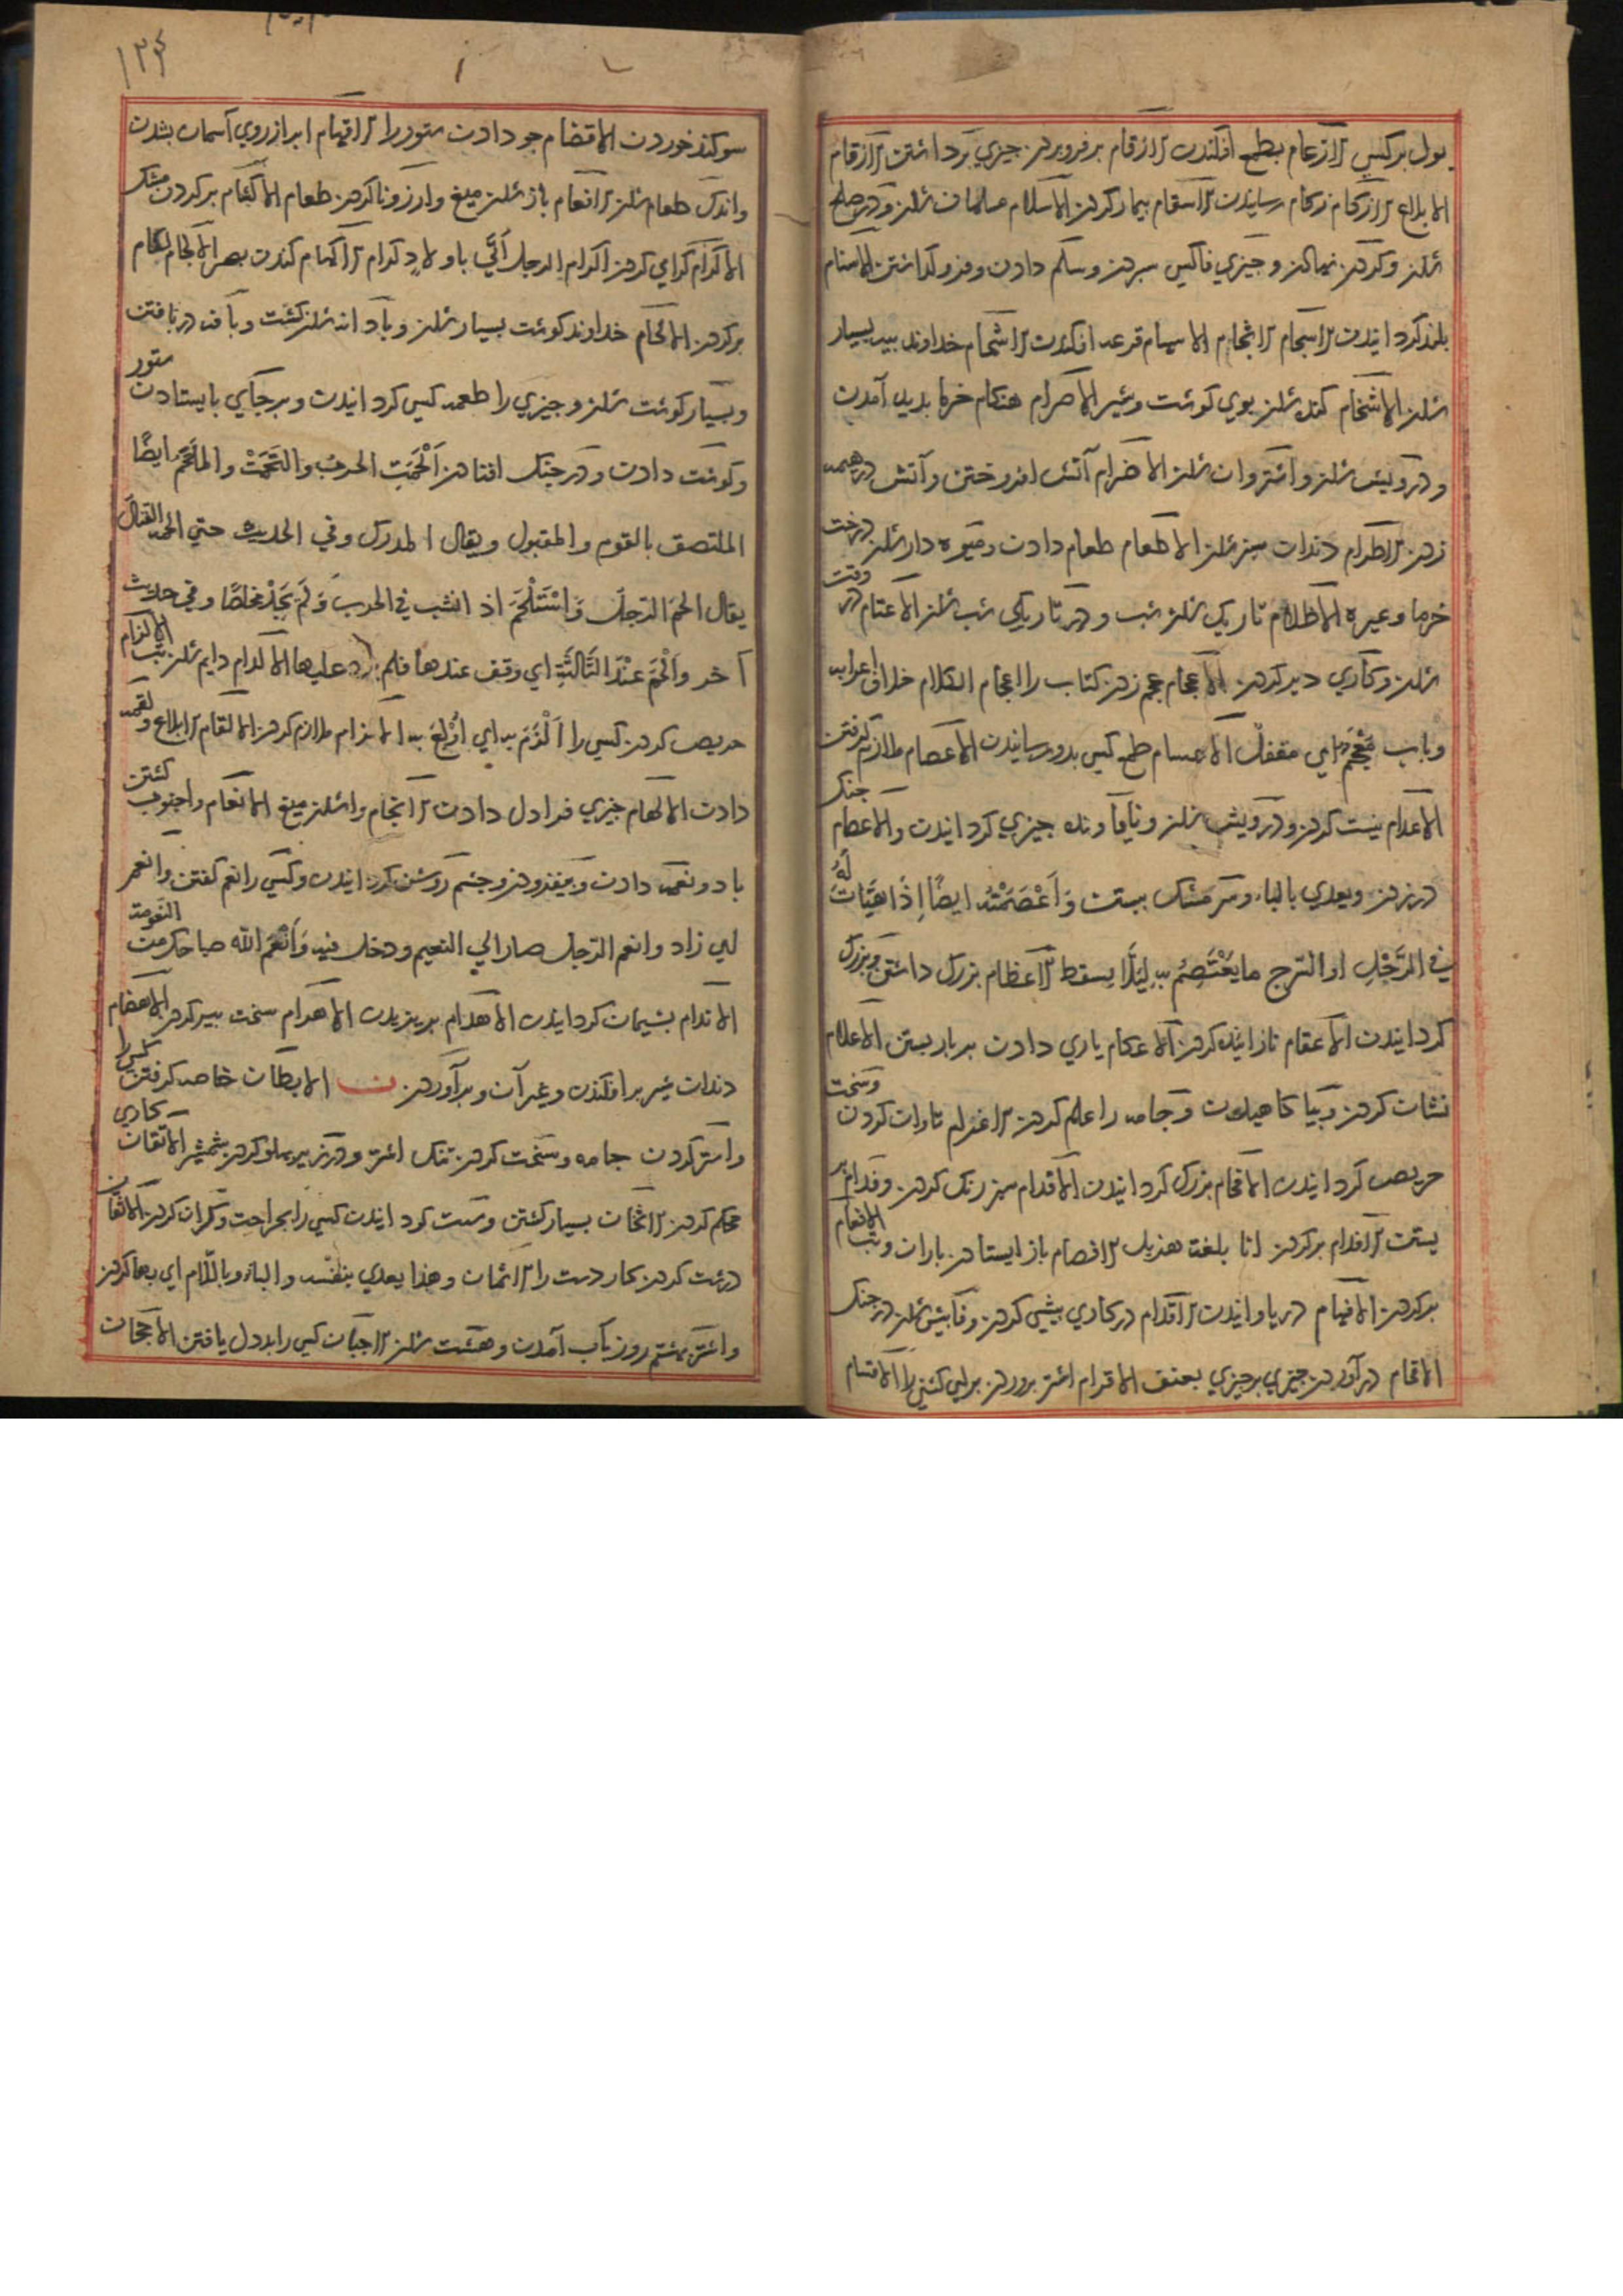 بول بر کسی الازعام بطمع افکندن الازقام بر فرو بردن چیزی بر داشتن الازقام
الابلاع الازکام زکام رسانیدن الاسقام بیمار کردن الاسلام مسلمان شدن و در صلح
شدن و کردن و چیزی فاکسی سپردن و سلم دادن و فرو گذاشتن الاسنام
بلند کردانیدن الاسجام الاثجام الاسهام قرعه افکندن الاشحام خداوند پیه بسیار
شدن الاشخام کنده شدن بوی گوشت و شیر الاصرام هنگام خرما بدید آمدن
و درویش شدن الاضرام آتش افروختن و آتش در هیمه
زدن الاطرام دندان سبز شدن الاطعام طعام دادن و میوه دار شدن درخت
خرما و غیره الاظلام تاریک شدن شب و در تاریکی شب شدن الاعتام در وقت
شدن و کاری دیر کردن الاعجام عجم زدن کتاب را اعجام الکلام خلاف اعرابه
و باب معجم ای مقفل الاعسام طمع کسی بدو رسانیدن الاعصام ملازم گرفتن
الاعدام نیست کردن و درویش شدن و نایاونده چیزی کردانیدن والاعصام جنک
در زدن و یعدی بالباء و سر مشک ببستن وَاَعْصَمْتُه ایضًا اِذَا هَیَّات لَهُ
فی الرَّحْلِ او السّرج ما یَعْتَصِمُ به لِیَلَّا یسقط الاعظام بزرک داشتن و بزرک
کردانیدن الاعقام نازاینده کردن الاعکام یاری دادن بر بار بستن الاعلام
نشان کردن و بیاکاهیدن و جامه را علم کردن الاغرام تاوان کردن و سخت
حریص کردانیدن الافخام بزرک کردانیدن الافدام سرخ رنک کردن و فدام بر
بستن الافعام بر کردن انا بلغة هذیل الافصام باز ایستادن باران و تب الافعام
بر کردن الافهام دریاوانیدن الاقدام در کاری پیشی کردن و فاپیش شدن در جنک
الاقحام در آوردن چیزی بر چیزی بعنف الاقرام اشتر پروردن برای کشنی را الاقسام
۱۳۴
سوکند خوردن الاقضام جو دادن ستور را الاقهام ابر از روی آسمان بشدن
واندک طعام شدن الاقعام باز شدن میغ و آرزو ناکردن طعام الاکتام بر کردن مشک
الاکرام کرامی کردن اکرام الرجل اتی باولاد کرام الاکهام کند شدن بصر الالجام لکام
بر کردن الالحام خداوند گوشت بسیار شدن و با دانه شدن کشت و بافه در بافتن
و بسیار گوشت شدن و چیزی را طعمه کسی کردانیدن و بر جای بایستادن ستور
و گوشت دادن و در جنک افتادن اَلْحَمَت الحرب والتَحَمَتْ والملحَم ایضًا
الملتصق بالقوم والمقبول ویقال المدرک وفی الحدیث حتی الحمه القتال
یقال الحم الرّجل وَاسْتَلْحَمَ اذ انشب فی الحرب وَلَم یَجِدْ مخلصًا وفی حدیث
آخر وَالحَمَ عِنْدَ الثَّالثَةِ ای وقف عندها فلم یزد علیها الالدام دایم شدن تب الالزام
حریص کردن کسی را اَلْزِمَ به ای اُوْلِعَ به الالزام ملازم کردن الالقام الابلاع و لقمه
دادن الالهام چیزی فرا دل دادن الانجام وا شدن میغ الانعام واجنوب کشتن
باد و نعمة دادن و بیفزودن و چشم روشن کردانیدن و کسی را نعم گفتن وانعم
ای زاد وانعم الرّجل صار الی النعیم ودخل فیه وَاَنْعَم الله صباحک من النعومة
الاندام پشیمان کردانیدن الاهدام الاهرام سخت پیر کردن الاهضام
دندان شیر بر افکندن و غیر آن و بر آوردن ن الابطان خاصه گرفتن کسی را
و آستر کردن جامه و سخت کردن تنک اشتر و در زیر پهلو کردن شمشیر الاتقان کاری
محکم کردن الاثخان بسیار کشتن و سست کردانیدن کسی را بجراحت و گران کردن الاثفان
درشت کردن کار دست را الاثمان وهذا یعدی بنفسه والباء وباللّام ای بها کردن
واشتر بهشتم روز بآب آمدن و هشت شدن الاجبان کسی را بددل یافتن الاجحان